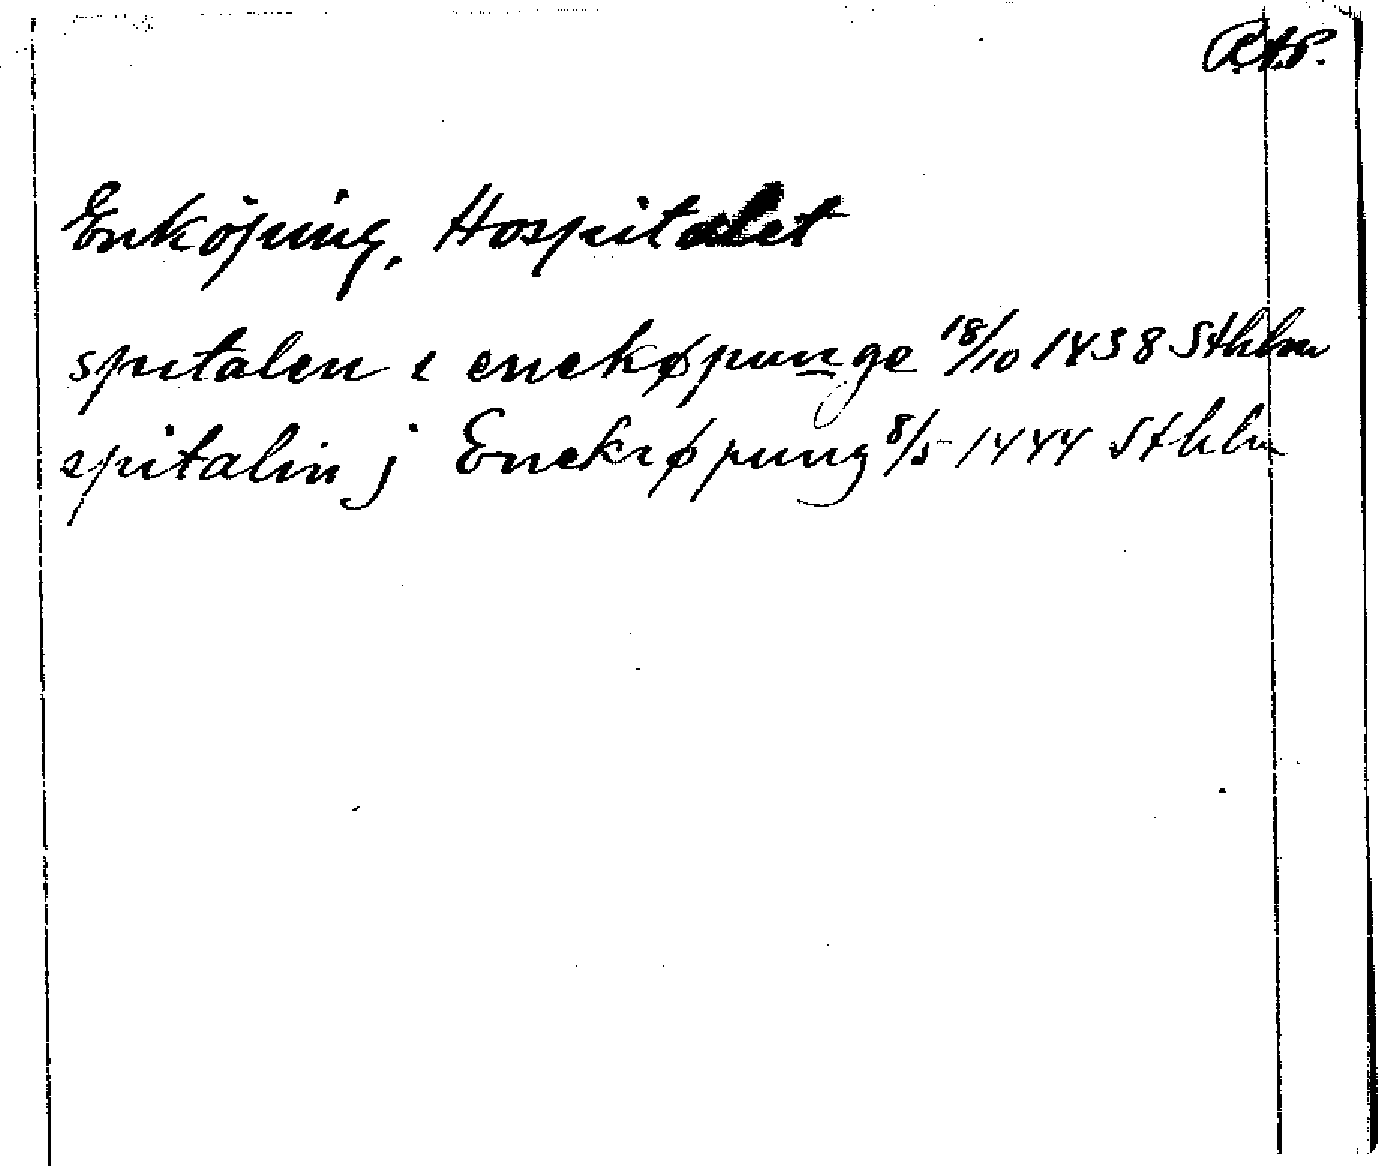 R.A.P.
Enköping, Hospitalet
spitalen i enekøpunge 18/10 1438 Sthlm
spitalin j Enekiøpung 8/5 1444 Sthlm